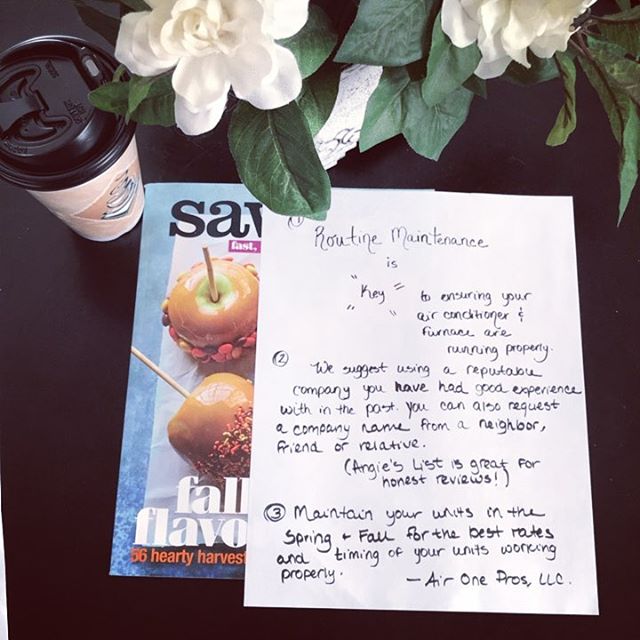 sav
fast,
fall
flavo
56 hearty harves
①
Routine Maintenance
is
"Key"
to ensuring your
air conditioner &
furnace are
running properly.
② We suggest using a reputable
company you have had good experience
with in the past. You can also request
a company name from a neighbor,
friend or relative.
(Angie's List is great for
honest reviews!)
③ Maintain your units in the
Spring + Fall for the best rates
and timing of your units working
properly.
— Air One Pros, LLC.